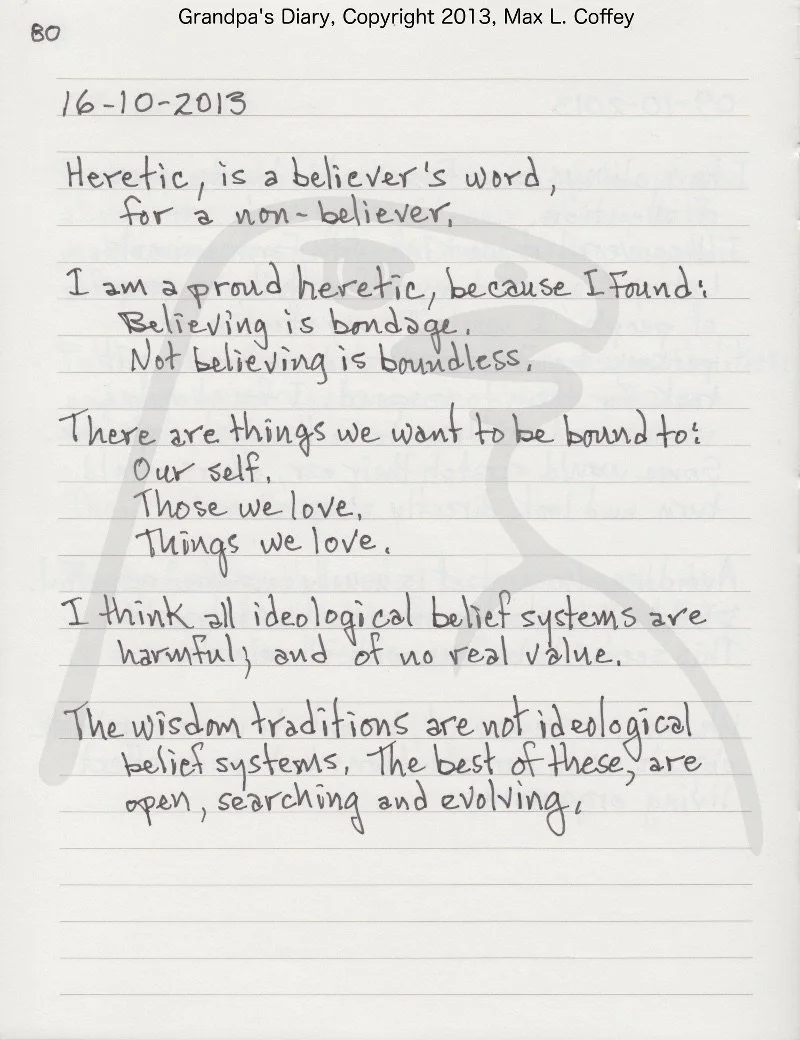 Grandpa's Diary, Copyright 2013, Max L. Coffey
80
16-10-2013
Heretic, is a believer's word,
for a non-believer.
I am a proud heretic, because I found:
Believing is bondage.
Not believing is boundless.
There are things we want to be bound to:
Our self.
Those we love.
Things we love.
I think all ideological belief systems are
harmful; and of no real value.
The wisdom traditions are not ideological
belief systems. The best of these, are
open, searching and evolving.